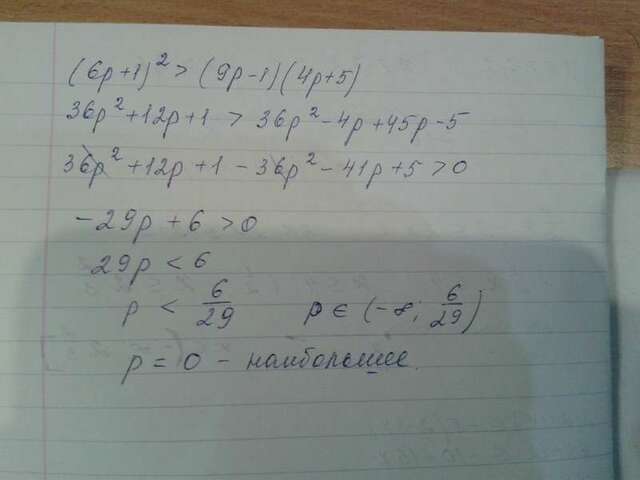 (6p+1)² > (9p-1)(4p+5)
36p²+12p+1 > 36p²-4p+45p-5
36p²+12p+1-36p²-41p+5>0
-29p+6>0
29p<6
p < 6/29 p∈(-∞; 6/29)
p=0 - наибольшее.